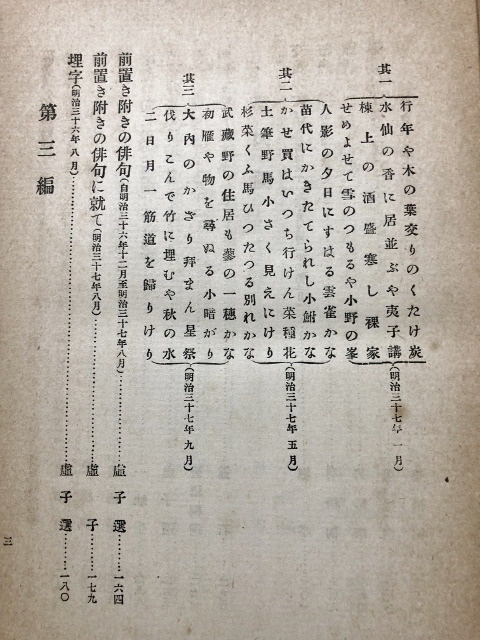 其一
行年や木の葉交りのくたけ炭
水仙の香に居並ぶや夷子講
棟上の酒盛寒し裸家
せめよせて雪のつもるや小野の峯
(明治三十七年一月)
其二
人影の夕日にすはる雲雀かな
苗代にかきたてられし小鮒かな
かせ買はいつち行けん菜種花
土筆野馬小さく見えにけり
杉菜くふ馬ひつたつる別れかな
(明治三十七年五月)
其三
武蔵野の住居も蓼の一穂かな
初雁や物を尋ぬる小暗がり
大内のかざり拜まん星祭
伐りこんで竹に埋むや秋の水
二日月一筋道を歸りけり
(明治三十七年九月)
前置き附きの俳句(自明治三十六年十二月至明治三十七年八月)………虚子選………一六四
前置き附きの俳句に就て(明治三十七年八月)………虚子………一七九
埋字(明治三十六年八月)………虚子選………一八〇
第三編
三